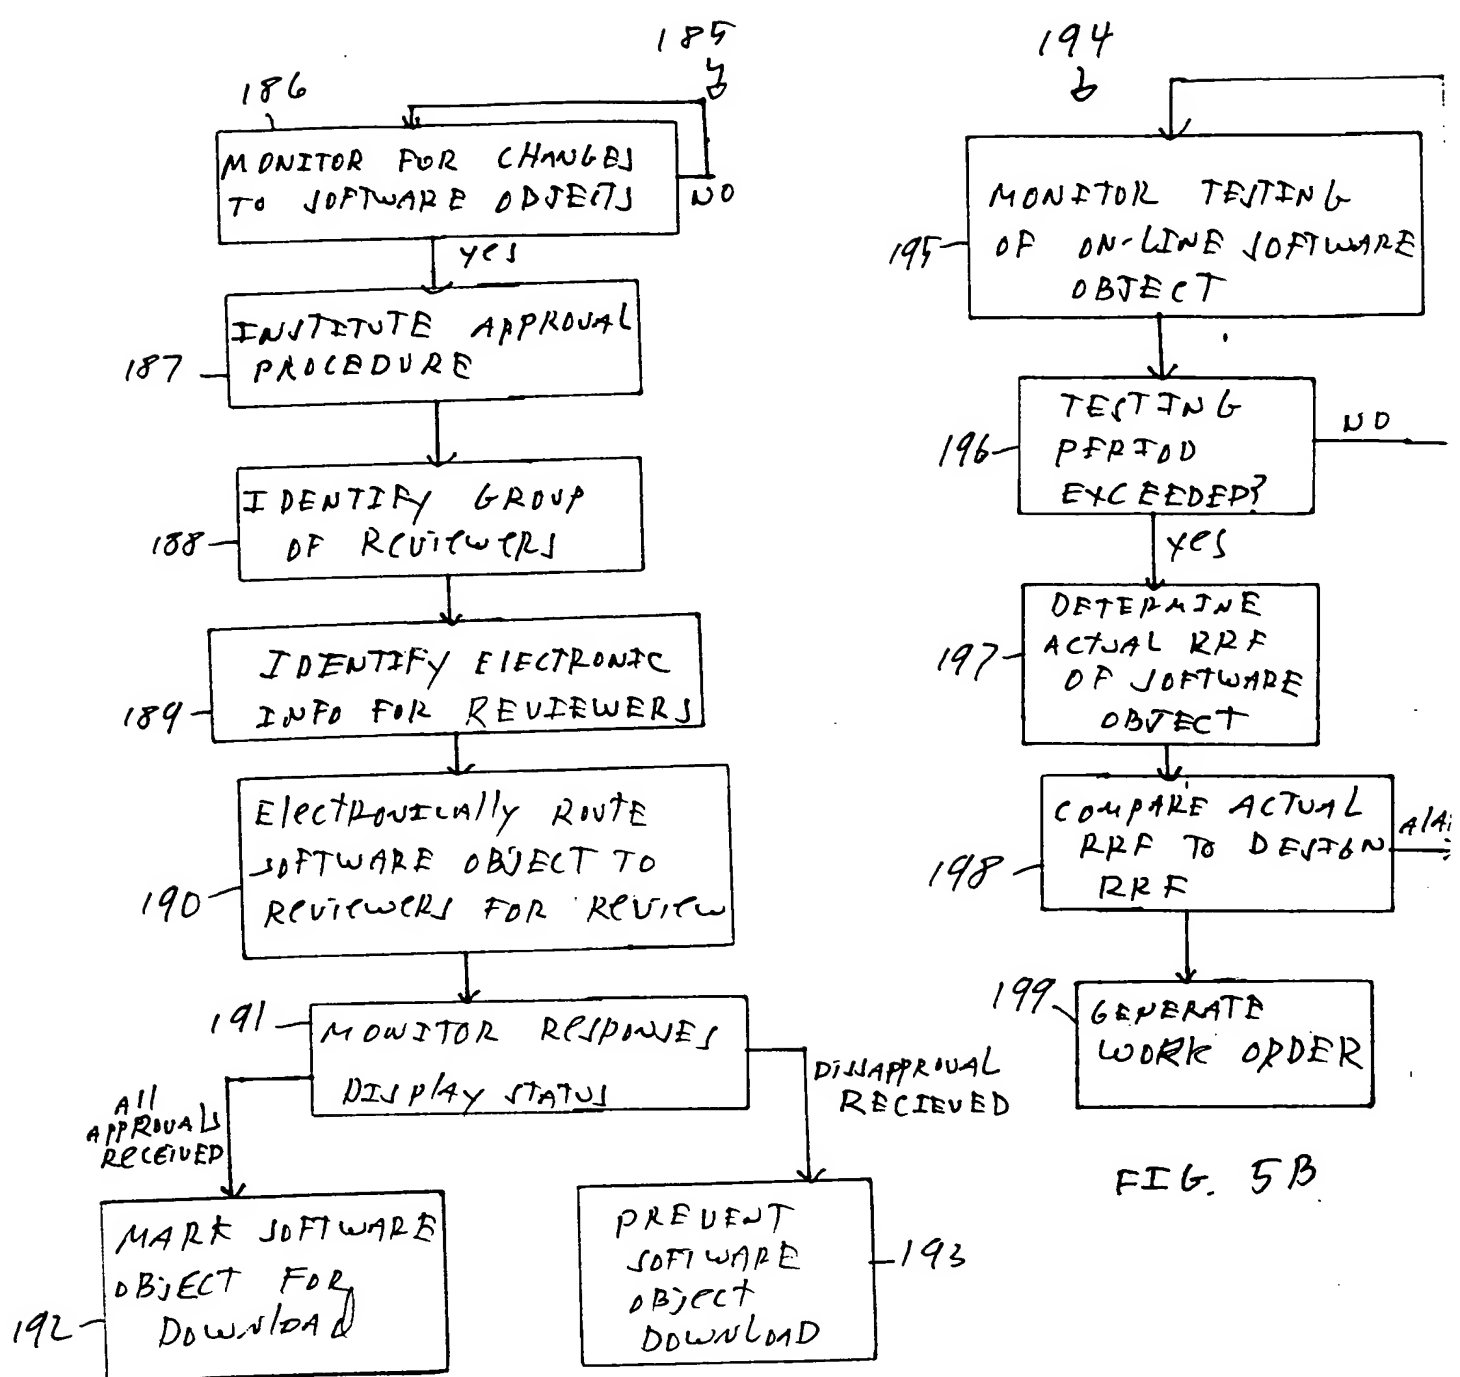 185
186
MONITOR FOR CHANGES
TO SOFTWARE OBJECTS
NO
yes
INSTITUTE APPROVAL
PROCEDURE
187
IDENTIFY GROUP
OF REVIEWERS
188
IDENTIFY ELECTRONIC
INFO FOR REVIEWERS
189
ELECTRONICALLY ROUTE
SOFTWARE OBJECT TO
REVIEWERS FOR REVIEW
190
191
MONITOR RESPONSES
DISPLAY STATUS
All
APPROVALS
RECEIVED
DISSAPPROVAL
RECIEVED
MARK SOFTWARE
OBJECT FOR
DOWNLOAD
192
PREVENT
SOFTWARE
OBJECT
DOWNLOAD
193
194
MONITOR TESTING
OF ON-LINE SOFTWARE
OBJECT
195
TESTING
PERIOD
EXCEEDED?
196
NO
yes
DETERMINE
ACTUAL RRF
OF SOFTWARE
OBJECT
197
COMPARE ACTUAL
RRF TO DESIGN
RRF
198
199
GENERATE
WORK ORDER
FIG. 5B